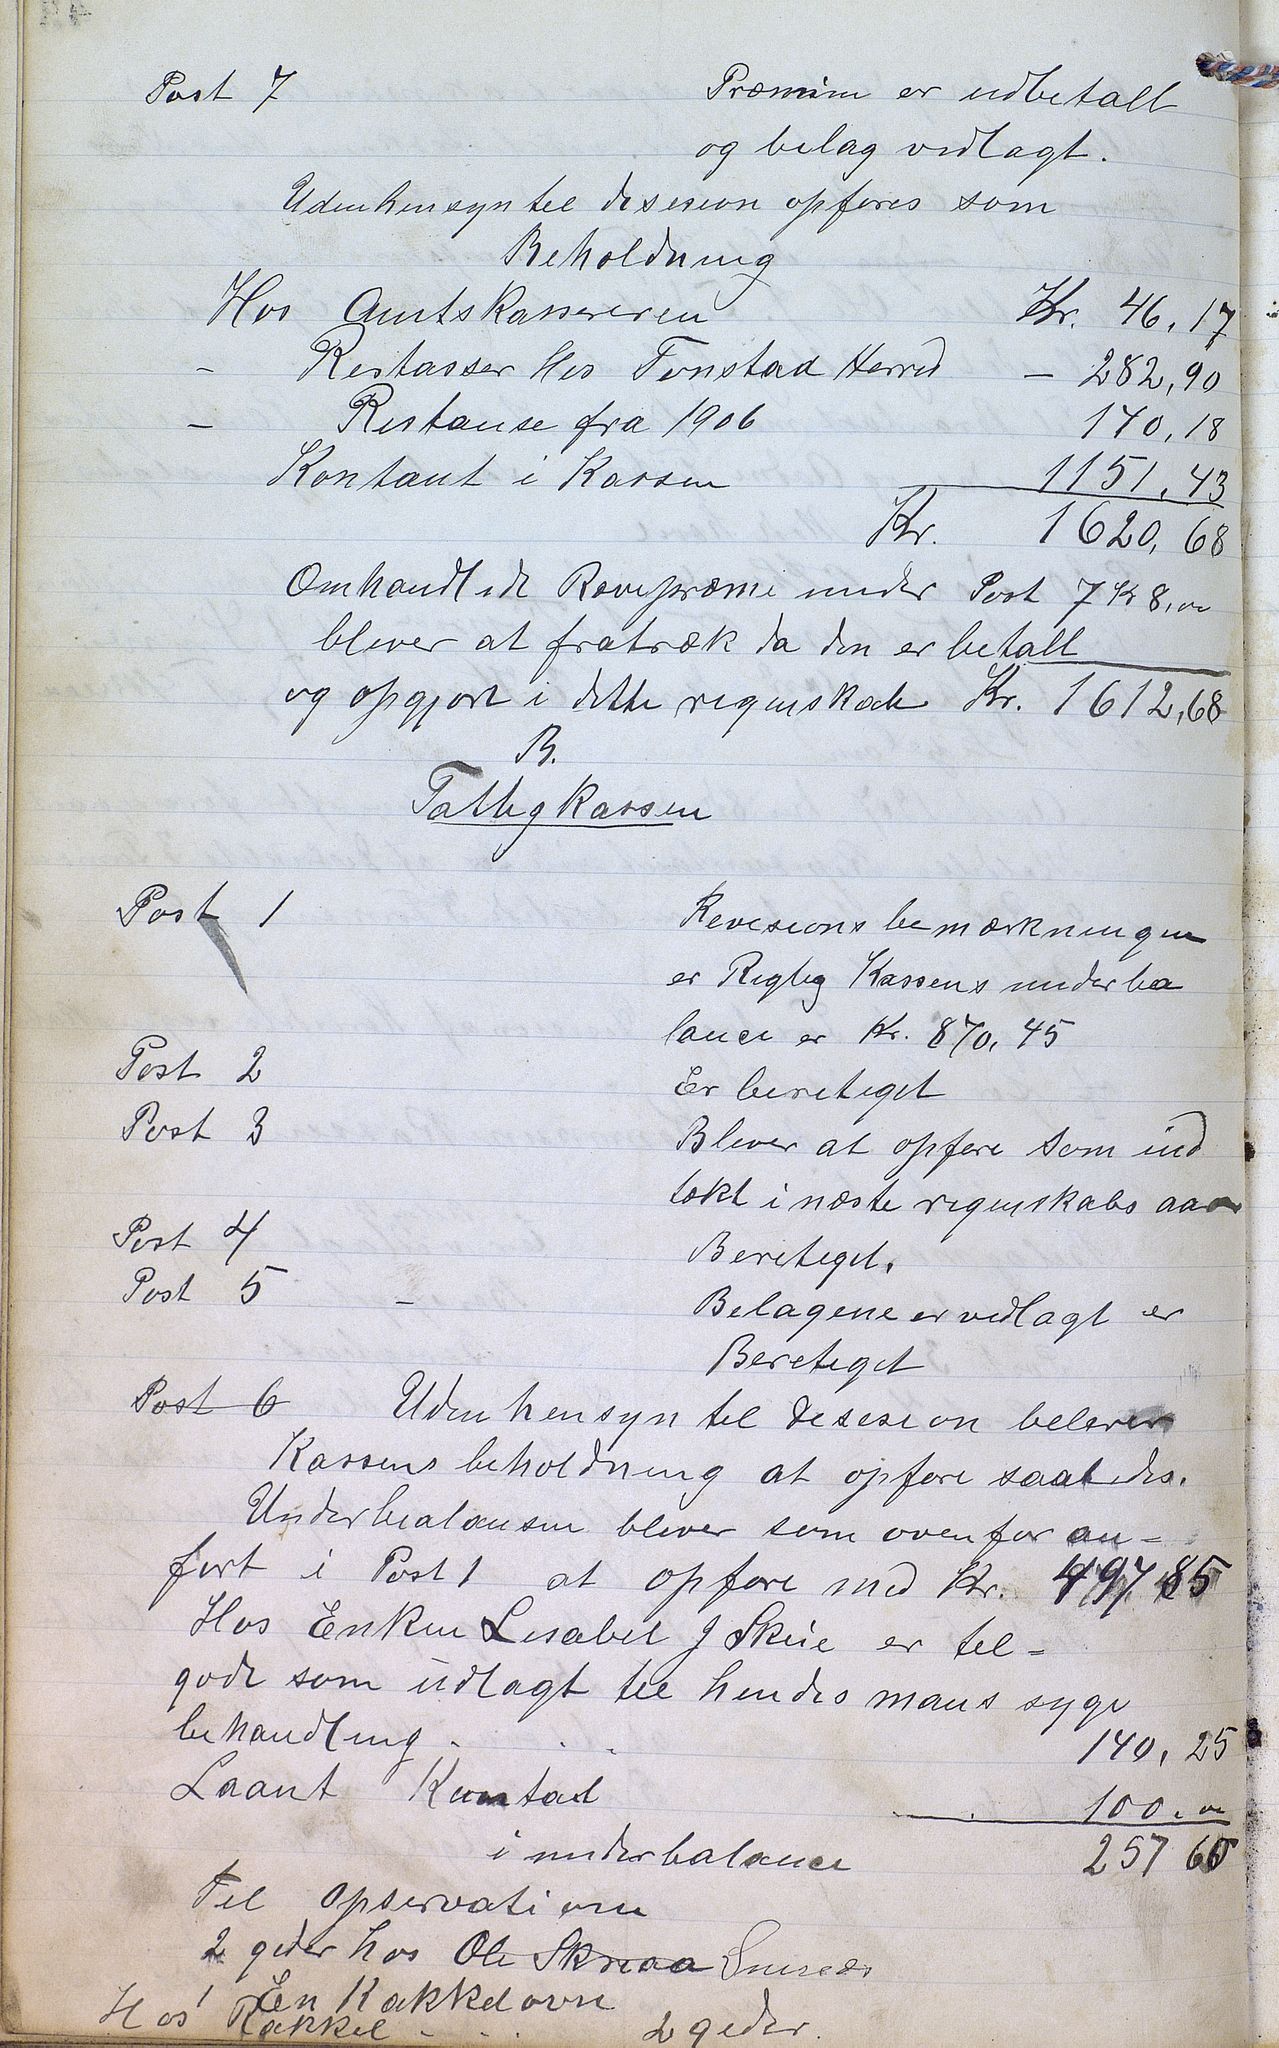 Post 7 Præmim er udbetalt
og belag vedlagt.
Uden hensyn tel desesion opføres som
Beholdning
Hos Amtskassereren Kr. 46,17
- Restasser Hos Tonstad Herred - 282,90
- Restanse fra 1906 140,18
Kontant i Kassen 1151,43
Kr. 1620,68
Omhandlede Rævepræmie under Post 7 Kr 8,00
blever at fratræk da den er betalt
og opgjort i dette regnskab Kr. 1612,68
B.
Fattigkassen
Post 1 Revesions bemærkningen
er Regteg Kassens underba
lance er Kr. 870,45
Post 2 Er beretiget
Post 3 Blever at opføre som ind
tækt i næste regnskabs aar
Post 4 Beretiget.
Post 5 - Belagene er vedlagt er
Beretiget
Post 6 Uden hensyn tel desesion belever
Kassens beholdning at opføre saaledes.
Underbalansen blever som ovenfor an-
ført i Post 1 at opføre med Kr. 497 85
Hos Enken Lisabet J Skeie er tel-
gode som udlagt tel hendes mans syge
behandling . . . 140,25
Laant Kontad 100,00
i underbalance 257 60
Tel opservation
2 geder hos Ole Sknaa
1 En Kakkelovn
Hos Rakkel . . . 2 geder.